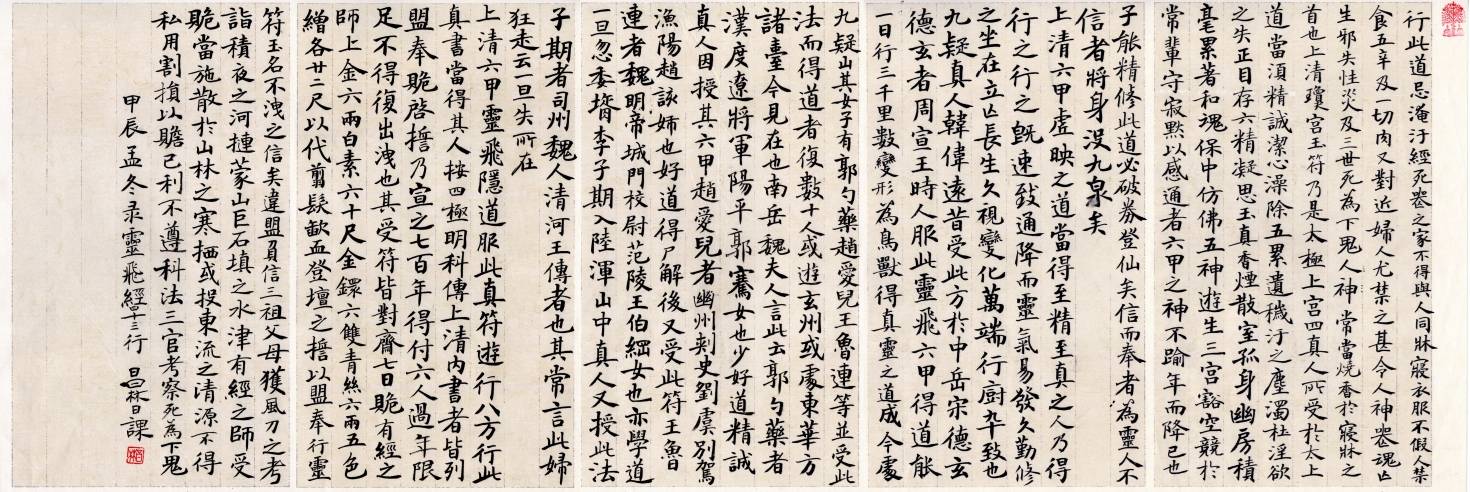 行此道忌淹汙經死喪之家不得與人同牀寢衣服不假人禁
食五辛及一切肉又對近婦人尤禁之甚令人神喪魂亡
生邪失性災及三世死為下鬼人神常當燒香於寢牀之
首也上清瓊宮玉符乃是太極上宮四真人所受於太上
道當須精誠潔心澡除五累遺穢汙之塵濁杜淫欲
之失正目存六精凝思玉真香煙散室孤身幽房積
毫累著和魂保中仿佛五神遊生三宮豁空競於
常輩守寂默以感通者六甲之神不踰年而降己也
子能精修此道必破券登仙矣信而奉者為靈人不
信者將身沒九泉矣
上清六甲虛映之道當得至精至真之人乃得
行之行之既速致通降而靈氣易發久勤修
之坐在立亡長生久視變化萬端行廚卒致也
九疑真人韓偉遠昔受此方於中岳宋德玄
德玄者周宣王時人服此靈飛六甲得道能
一日行三千里數變形為鳥獸得真靈之道成今處
九疑山其女子有郭勺藥趙愛兒王魯連等並受此
法而得道者復數十人或遊玄州或處東華方
諸臺今見在也南岳魏夫人言此云郭勺藥者
漢度遼將軍陽平郭騫女也少好道精誠
真人因授其六甲趙愛兒者幽州刺史劉虞別駕
漁陽趙該姊也好道得尸解後又受此符王魯
連者魏明帝城門校尉范陵王伯綱女也亦學道
一旦忽委壻李子期入陸渾山中真人又授此法
子期者司州魏人清河王傳者也其常言此婦
狂走云一旦失所在
上清六甲靈飛隱道服此真符遊行八方行此
真書當得其人按四極明科傳上清內書者皆列
盟奉跪啓誓乃宣之七百年得付六人過年限
足不得復出洩也其受符皆對齋七日跪有經之
師上金六兩白素六十尺金鐶六雙青絲六兩五色
繒各廿二尺以代翦髮歃血登壇之誓以盟奉行靈
符玉名不洩之信矣違盟負信三祖父母獲風刀之考
詣積夜之河揵蒙山巨石填之水津有經之師受
跪當施散於山林之寒栖或投東流之清源不得
私用割損以贍己利不遵科法三官考察死為下鬼
甲辰孟冬录靈飛經四十三行 昌林日課